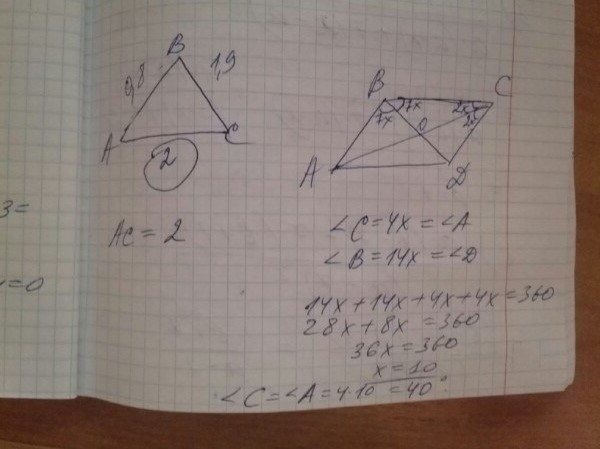 B
0,8 1,9
A C
2
AC = 2
B C
7x 7x 2x
2x
O
A D
∠C=4x=∠A
∠B=14x=∠D
14x+14x+4x+4x=360
28x+8x =360
36x=360
x=10
∠C=∠A=4·10=40°
3=
=0